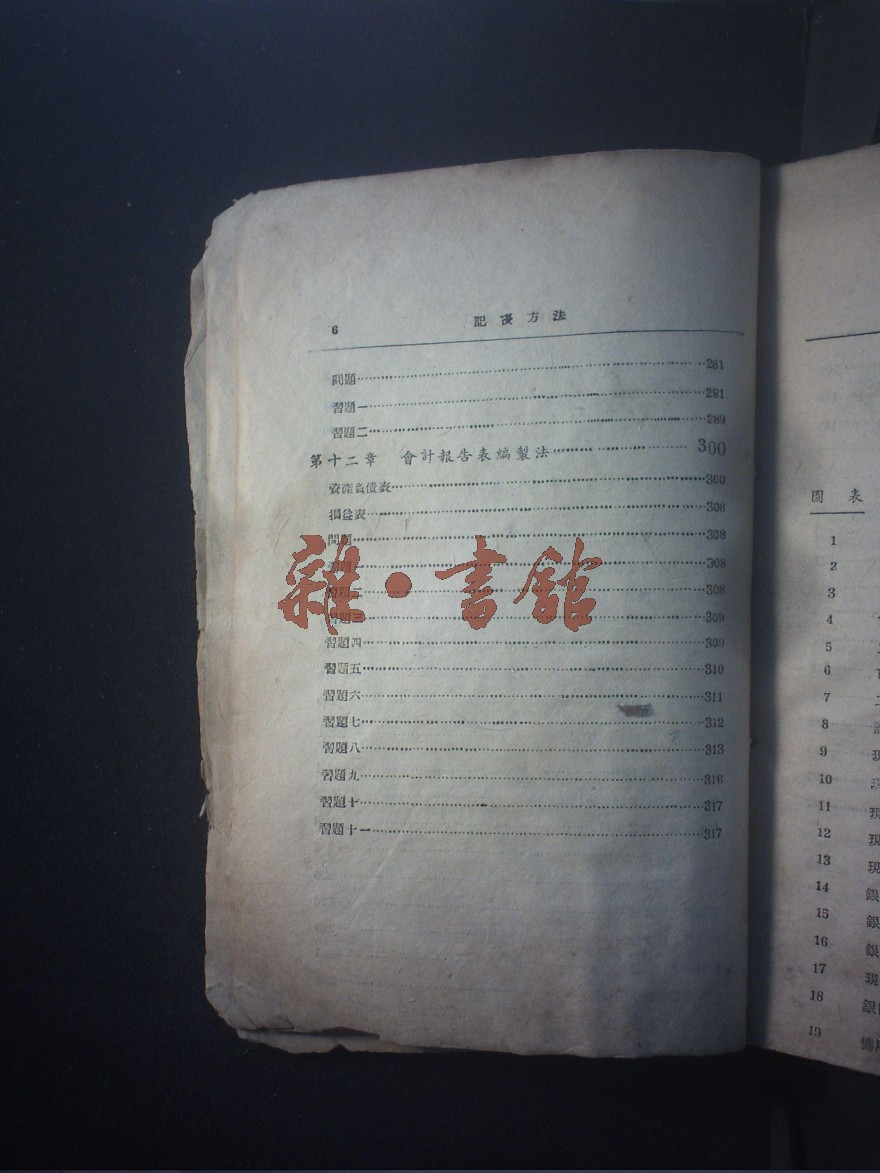 6 記賬方法
問題 281
習題一 281
習題二 289
第十二章 會計報告表編製法 300
資產負債表 300
損益表 308
問題 308
習題一 308
習題二 308
習題三 309
習題四 309
習題五 310
習題六 311
習題七 312
習題八 313
習題九 316
習題十 317
習題十一 317
雜·書館
圖表
1
2
3
4
5
6
7
8
9 現
10
11 現
12 現
13 現
14 銀
15 銀
16 銀
17 現
18 銀
19